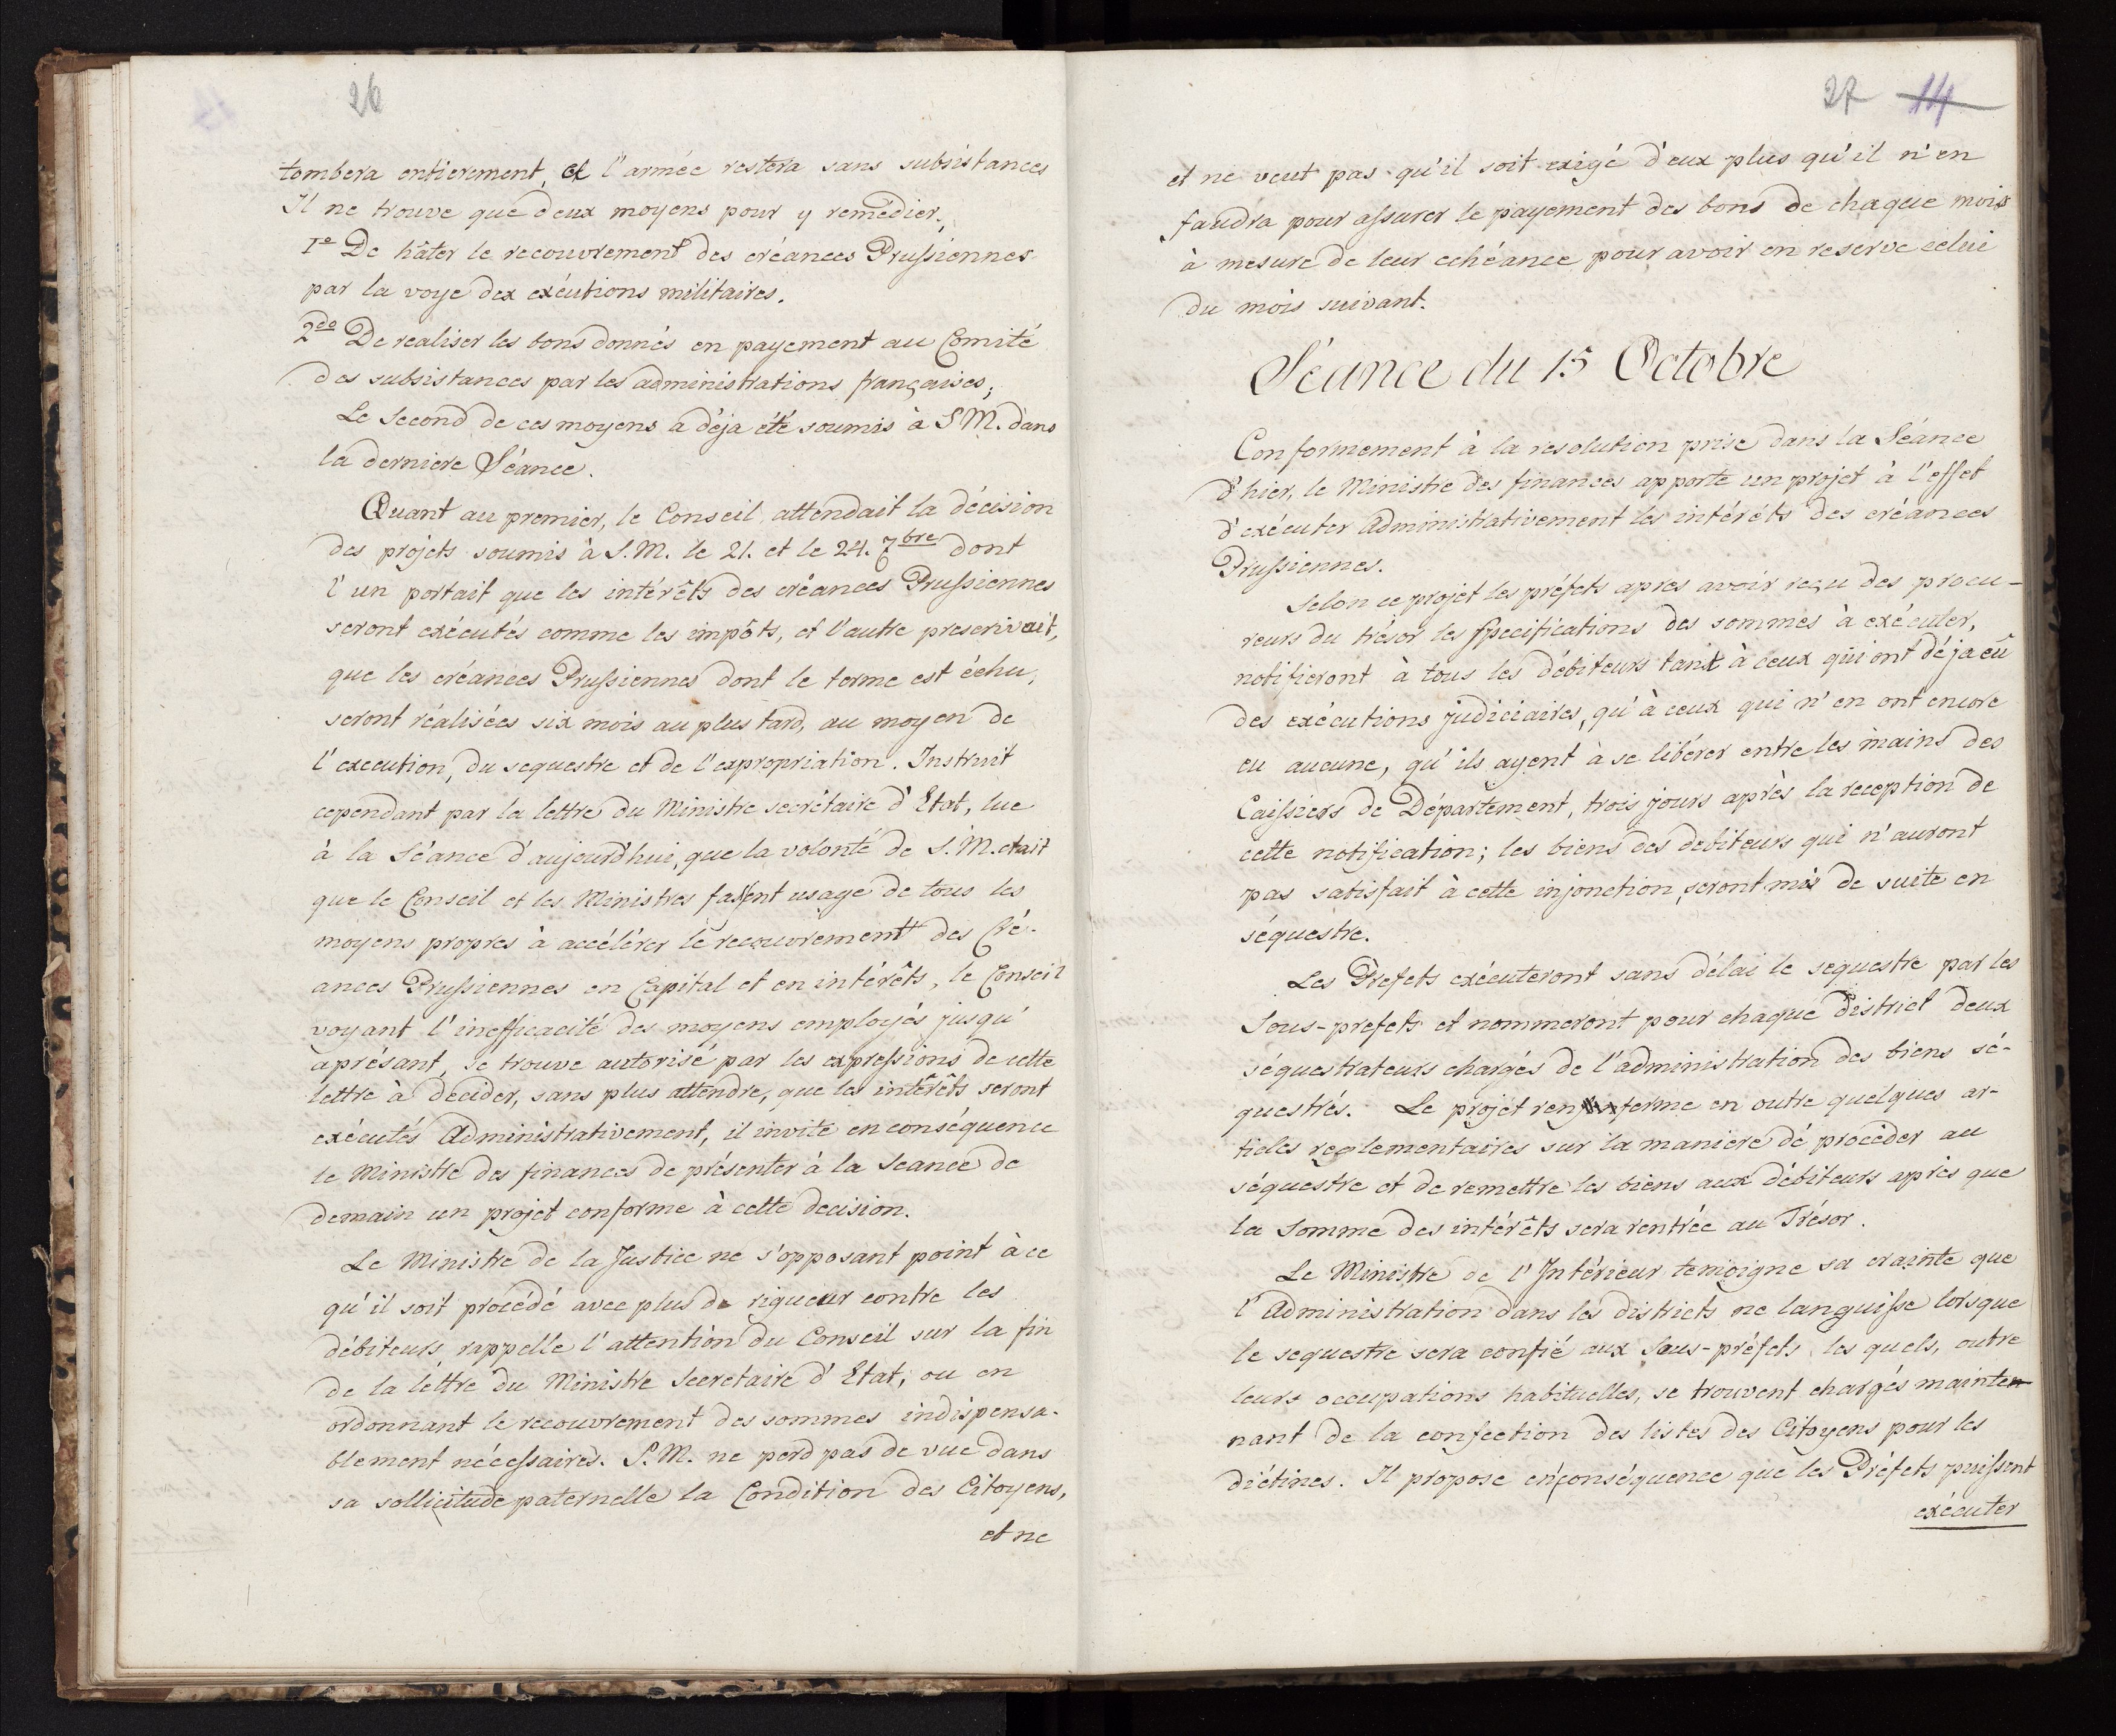 26
tombera entierement, et l'armée restera sans subsistances
Il ne trouve que deux moyens pour y remedier.
1º De hâter le recouvrement des créances Prussiennes
par la voye des exécutions militaires.
2do De realiser les bons donnés en payement au Comité
des subsistances par les administrations françaises;
Le Second de ces moyens a déja été soumis à S M. dans
la derniere Séance.
Quant au premier, le Conseil attendait la décision
des projets soumis à S. M. le 21. et le 24. 7bre dont
l'un portait que les intérêts des créances Prussiennes
seront exécutés comme les impôts, et l'autre prescrivait,
que les créances Prussiennes dont le terme est échu,
seront réalisées six mois au plus tard, au moyen de
l'execution, du sequestre et de l'expropriation. Instruit
cependant par la lettre du Ministre secrétaire d'Etat, lue
à la Séance d'aujourd'hui, que la volonté de S. M. etait
que le Conseil et les Ministres fassent usage de tous les
moyens propres à accélérer le recouvrement des Cré-
ances Prussiennes en Capital et en intérêts, le Conseil
voyant l'inefficacité des moyens employés jusqu'
aprésant, se trouve autorisé par les expressions de cette
lettre à decider, sans plus attendre, que les intérêts seront
exécutés Administrativement, il invite en conséquence
le Ministre des finances de présenter à la Seance de
demain un projet conforme à cette decision.
Le Ministre de la Justice ne s'opposant point à ce
qu'il soit procédé avec plus de rigueur contre les
débiteurs rappelle l'attention du Conseil sur la fin
de la lettre du Ministre Secretaire d'Etat, ou en
ordonnant le recouvrement des sommes indispensa-
blement nécessaires. S. M. ne perd pas de vue dans
sa sollicitude paternelle la Condition des Citoyens,
et ne
27 14
et ne veut pas qu'il soit exigé d'eux plus qu'il n'en
faudra pour assurer le payement des bons de chaque mois
à mesure de leur echéance pour avoir en reserve celui
du mois suivant.
Séance du 15 Octobre
Conformement à la resolution prise dans la Séance
d'hier, le Ministre des finances apporte un projet à l'effet
d'exécuter Administrativement les intérêts des créances
Prussiennes.
Selon ce projet les préfets apres avoir reçu des procu-
reurs du trésor les specifications des sommes à exécuter,
notifieront à tous les débiteurs tant à ceux qui ont déja eû
des exécutions judiciaires, qu'à ceux qui n'en ont encore
eu aucune, qu'ils ayent à se libérer entre les mains des
Caissiers de Département, trois jours après la reception de
cette notification; les biens des debiteurs qui n'auront
pas satisfait à cette injonction, seront mis de suite en
séquestre.
Les Prefets exécuteront sans délai le sequestre par les
Sous-prefets et nommeront pour chaque district deux
séquestrateurs chargés de l'administration des biens sé-
questrés. Le projet renferme en outre quelques ar-
ticles reglementaires sur la maniere de procéder au
séquestre et de remettre les biens aux débiteurs après que
la Somme des intérêts sera rentrée au Trésor.
Le Ministre de l'Intérieur temoigne sa crainte que
l'Administration dans les districts ne languisse lorsque
le sequestre sera confié aux Sous-préfets les quels, outre
leurs occupations habituelles, se trouvent chargés mainte-
nant de la confection des listes des Citoyens pour les
diétines. Il propose en conséquence que les Préfets puissent
exécuter